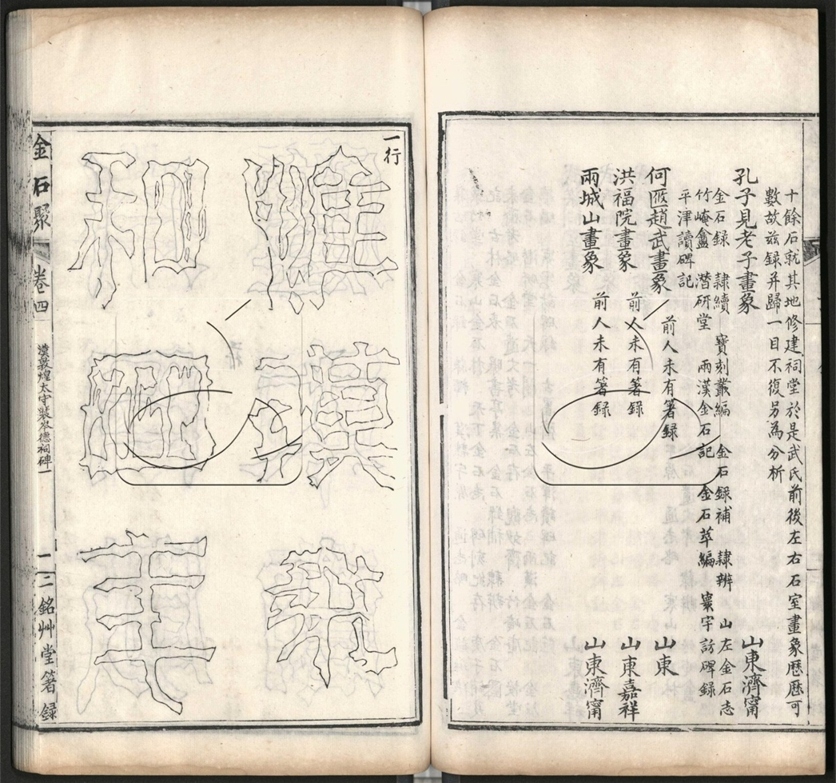 十餘石就其地修建祠堂於是武氏前後左右石室畫象歷歷可
數故茲錄并歸一目不復另為分析
孔子見老子畫象 山東濟甯
金石錄 隸續 寶刻叢編 金石錄補 隸辨 山左金石志
竹崦盦 潛研堂 兩漢金石記 金石萃編 寰宇訪碑錄
平津讀碑記
何匱趙武畫象 前人未有箸錄 山東
洪福院畫象 前人未有箸錄 山東嘉祥
兩城山畫象 前人未有箸錄 山東濟甯
一行
惟漢
和 年
金石聚 卷四 漢敦煌太守裴岑德祠碑一 一 二銘艸堂箸錄